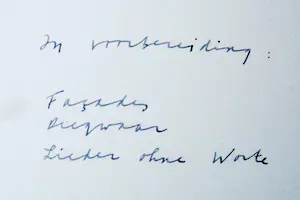 In voorbereiding:
Façades
Diegwaar
Lieder ohne Worte